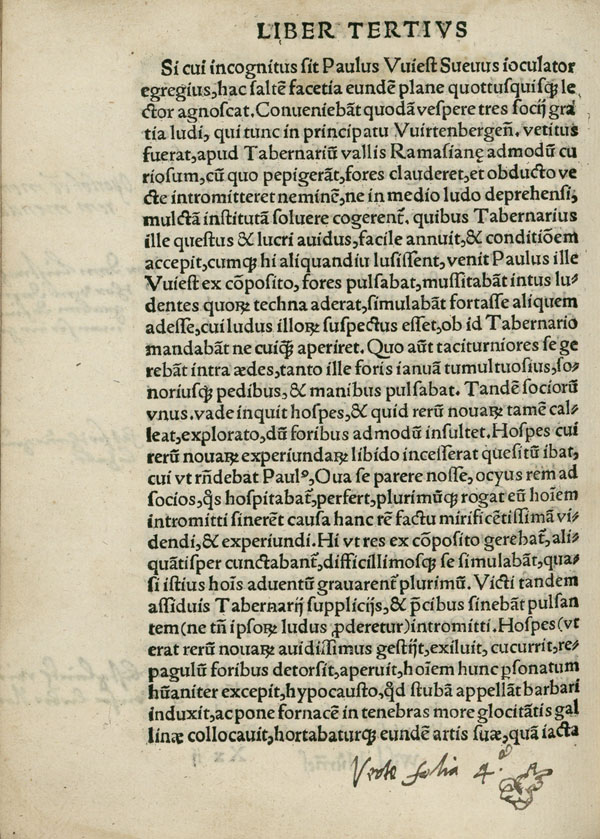 LIBER TERTIVS
Si cui incognitus sit Paulus Vuiest Sueuus ioculator
egregius, hac saltē facetia eundē plane quottusquisqꝫ le
ctor agnoscat. Conueniebāt quodā vespere tres socij gra
tia ludi, qui tunc in principatu Vuirtenbergeñ. vetitus
fuerat, apud Tabernariū vallis Ramasianę admodū cu
riosum, cū quo pepigerāt, fores clauderet, et obducto ve
cte intromitteret neminē, ne in medio ludo deprehensi,
mulctā institutā soluere cogerent᷑. quibus Tabernarius
ille questus & lucri auidus, facile annuit, & conditiōem
accepit, cumqꝫ hi aliquandiu lusissent, venit Paulus ille
Vuiest ex cōposito, fores pulsabat, mussitabāt intus lu-
dentes quoꝝ techna aderat, simulabāt fortasse aliquem
adesse, cui ludus illoꝝ suspectus esset, ob id Tabernario
mandabāt ne cuiqꝫ̄ aperiret. Quo aūt taciturniores se ge
rebāt intra ædes, tanto ille foris ianuā tumultuosius, so-
noriusqꝫ pedibus, & manibus pulsabat. Tandē sociorū
vnus. vade inquit hospes, & quid rerū nouaꝝ tamē cal-
leat, explorato, dū foribus admodū insultet. Hospes cui
rerū nouaꝝ experiundaꝝ libido incesserat quesitū ibat,
cui vt rñdebat Paulꝰ, Oua se parere nosse, ocyus rem ad
socios, q̄s hospitabat᷑, perfert, plurimūqꝫ rogat eū hoīem
intromitti sinerēt causa hanc rē factu mirificētissimā vi-
dendi, & experiundi. Hi vt res ex cōposito gerebat᷑, ali-
quātisper cunctabant᷑, difficillimosqꝫ se simulabāt, qua-
si istius hoīs aduentū grauarent᷑ plurimū. Victi tandem
assiduis Tabernarij supplicijs, & p̄cibus sinebāt pulsan
tem (ne tñ ipsoꝝ ludus ꝓderetur) intromitti. Hospes (vt
erat rerū nouaꝝ auidissimus gestijt, exiluit, cucurrit, re-
pagulū foribus detorsit, aperuit, hoīem hunc ꝑsonatum
hūaniter excepit, hypocausto, q̄d stubā appellāt barbari
induxit, ac pone fornacē in tenebras more glocitātis gal
linæ collocauit, hortabaturqꝫ eundē artis suæ, quā iacta
Verte folia 4.ª